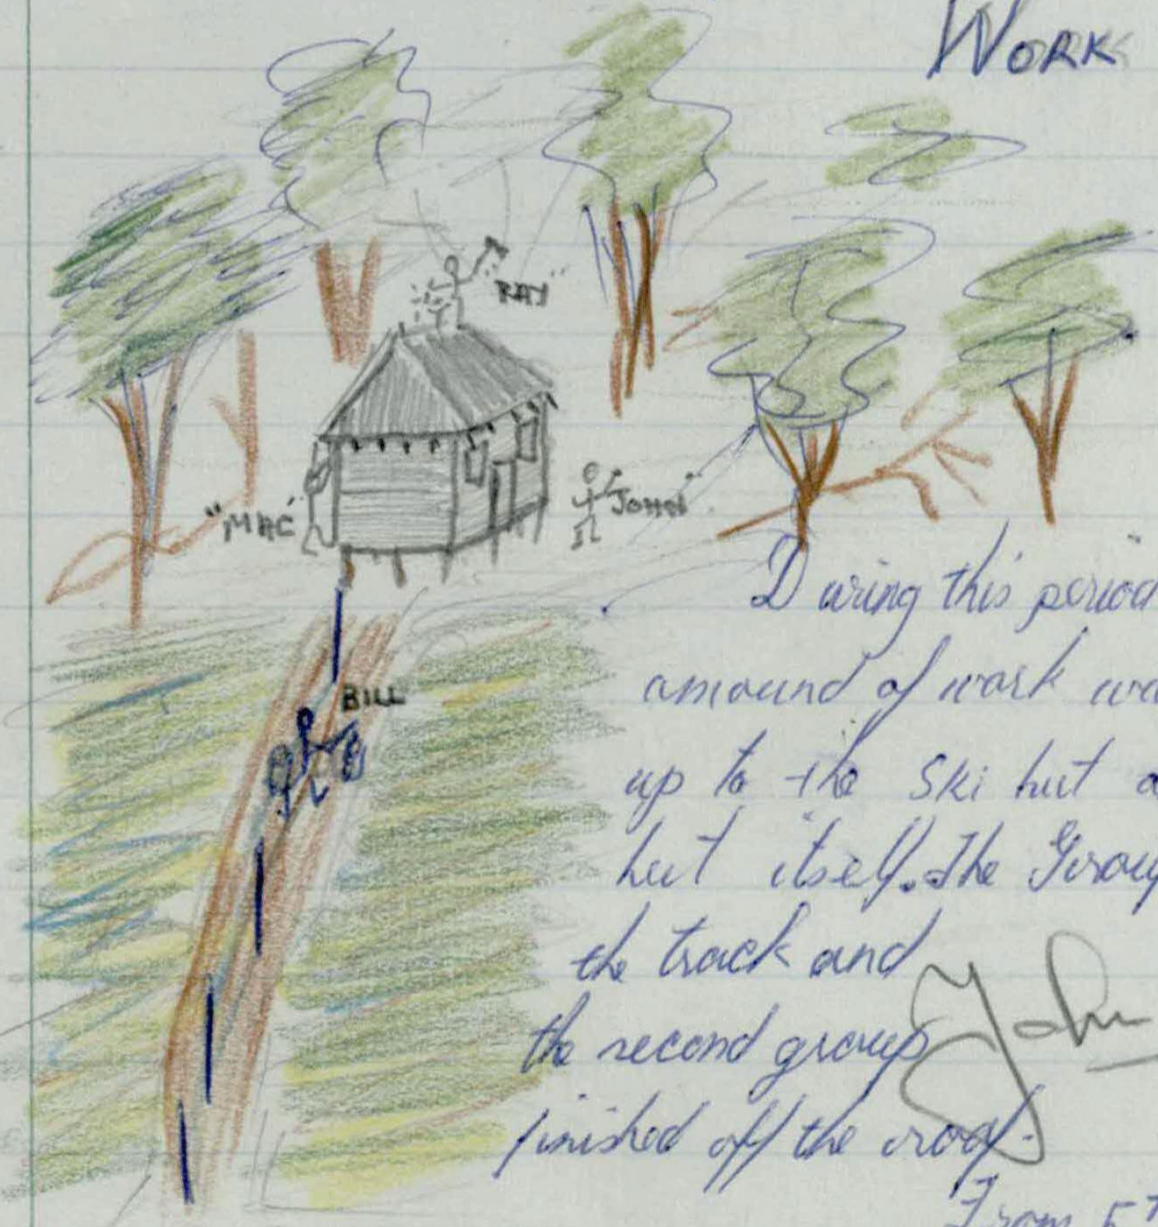 WORK
"RAY"
"MAC"
"JOHN"
During this period
amound of work wa
up to the Ski hut a
BILL
hut itself. The Group
the track and
John
the second group
finished off the roof.
From 5th